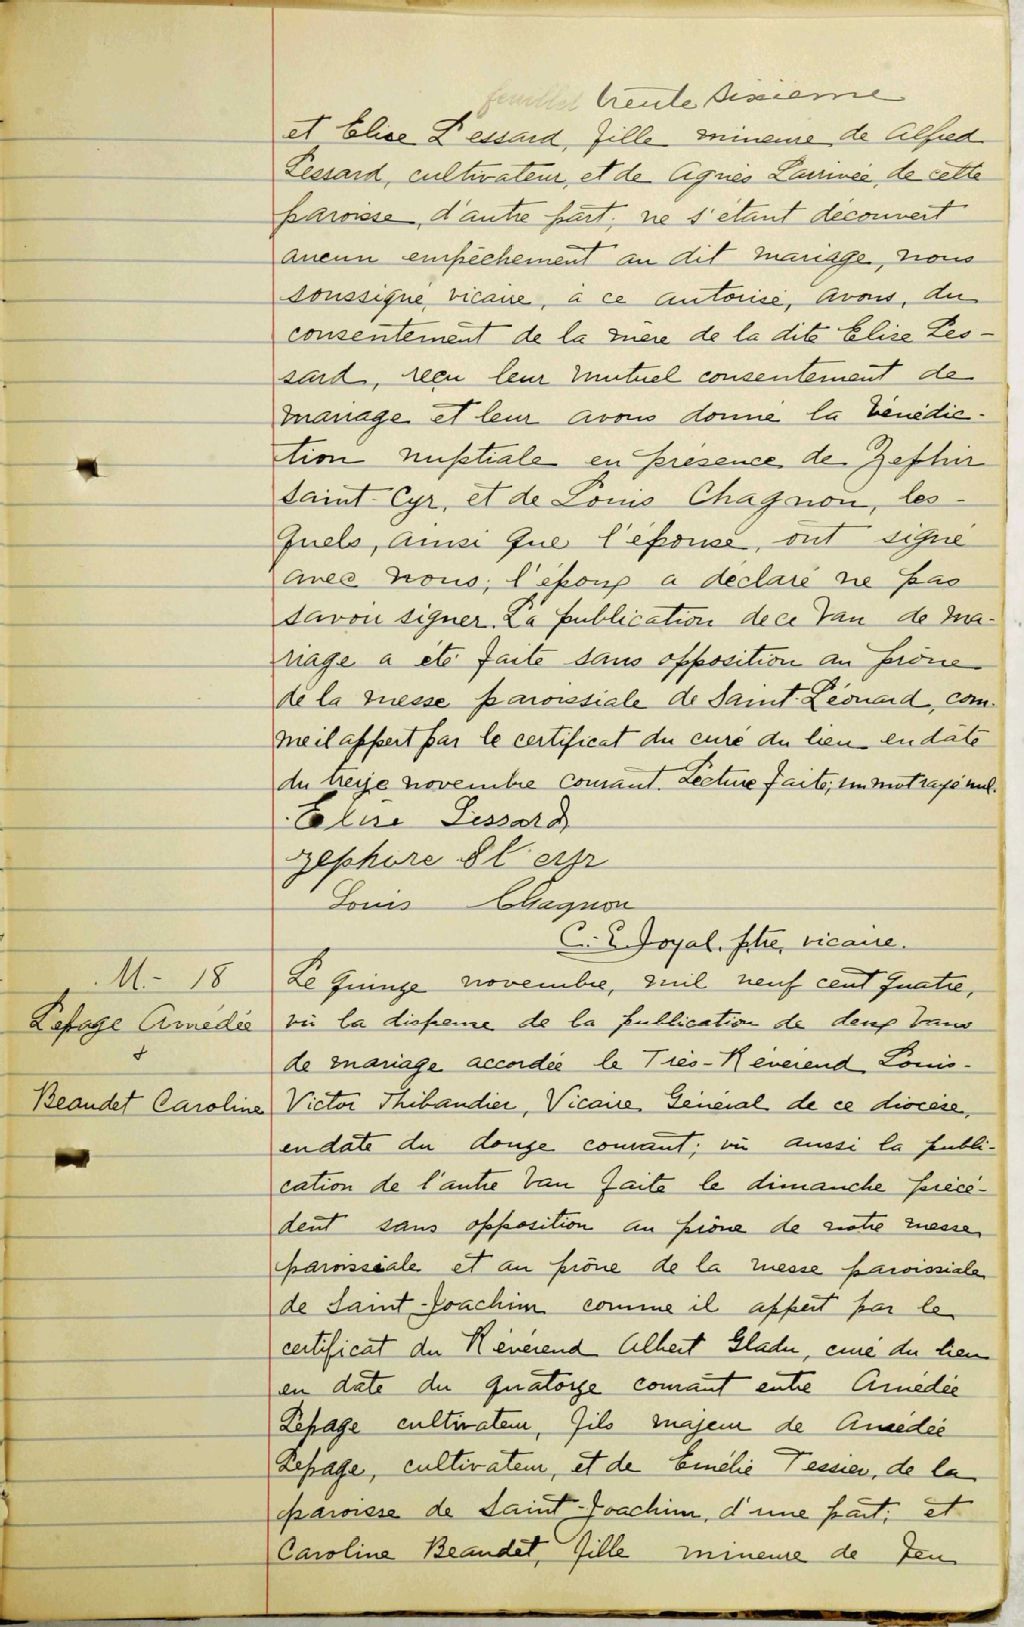 feuillet trente sixieme
et Elise Lessard, fille mineure de Alfred
Lessard, cultivateur, et de Agnès Larrivée, de cette
paroisse, d'autre part; ne s'étant découvert
aucun empêchement au dit mariage, nous
soussigné, vicaire, à ce autorisé, avons, du
consentement de la mère de la dite Elise Les-
sard, reçu leur mutuel consentement de
mariage et leur avons donné la bénédic-
tion nuptiale en présence de Zéphir
Saint-Cyr, et de Louis Chagnon, les-
quels, ainsi que l'épouse, ont signé
avec nous; l'époux a déclaré ne pas
savoir signer. La publication de ce ban de ma-
riage a été faite sans opposition au prône
de la messe paroissiale de Saint-Léonard, com-
me il appert par le certificat du curé du lieu en date
du treize novembre courant. Lecture faite; un mot rayé nul.
Elise Lessard
Zephire St cyr
Louis Chagnon
C.-E. Joyal. ptre, vicaire.
M.- 18
Lepage Amédée
+
Beaudet Caroline
Le quinze novembre, mil neuf cent quatre,
vu la dispense de la publication de deux bans
de mariage accordée le Très-Révérend Louis-
Victor Thibaudier, Vicaire Général de ce diocèse,
en date du douze courant; vu aussi la publi-
cation de l'autre ban faite le dimanche précé-
dent sans opposition au prône de notre messe
paroissiale et au prône de la messe paroissiale
de Saint-Joachim comme il appert par le
certificat du Révérend Albert Gladu, curé du lieu
en date du quatorze courant entre Amédée
Lepage cultivateur, fils majeur de Amédée
Lepage, cultivateur, et de Emélie Tessier, de la
paroisse de Saint-Joachim, d'une part; et
Caroline Beaudet, fille mineure de feu